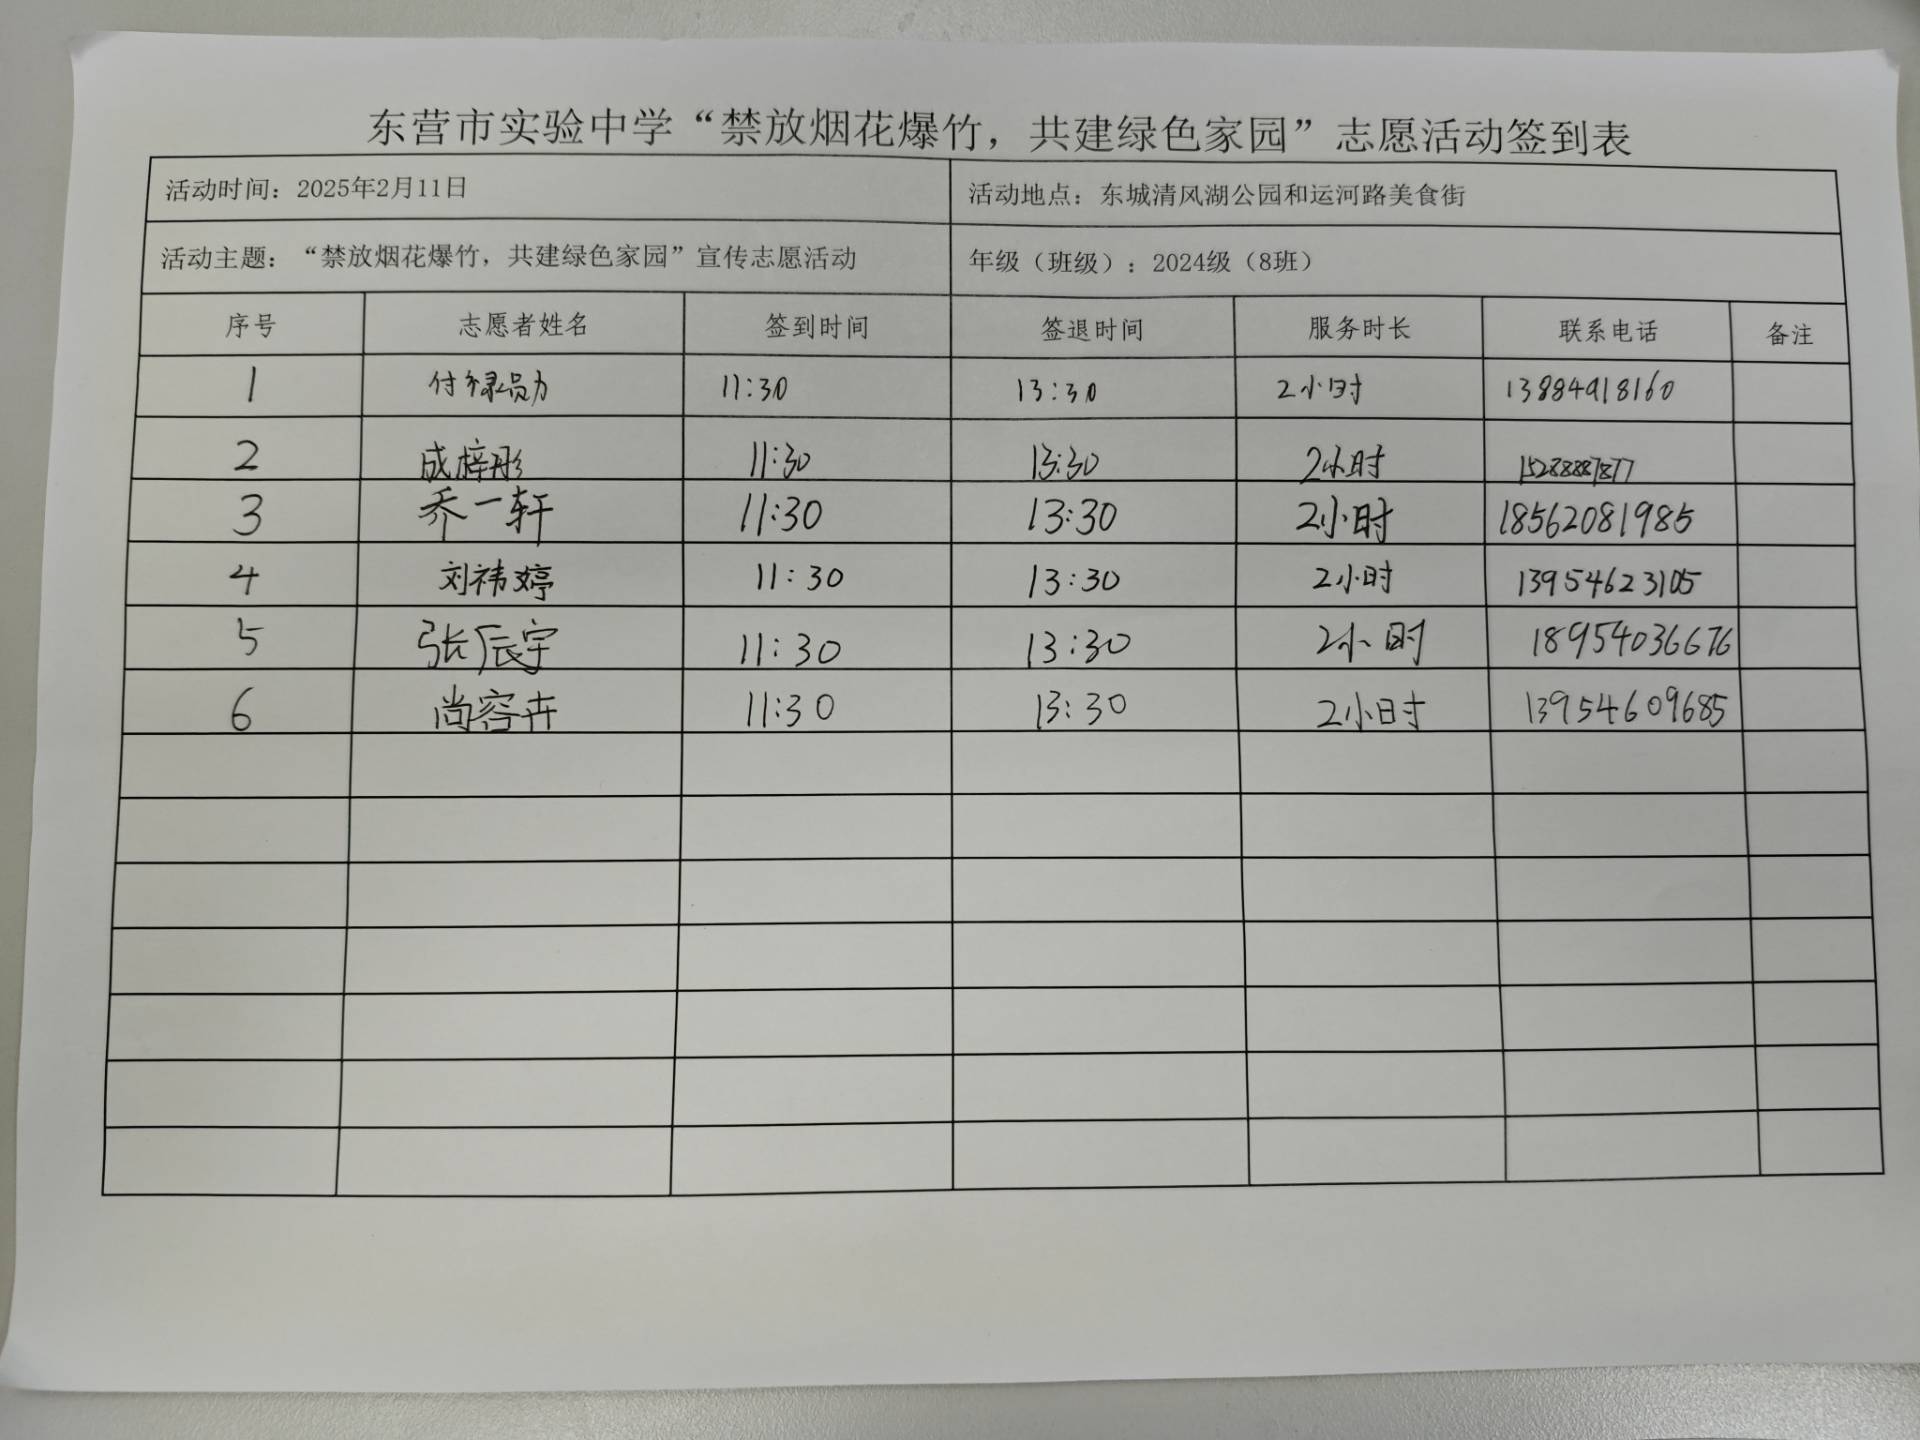 东营市实验中学“禁放烟花爆竹，共建绿色家园”志愿活动签到表
活动时间：2025年2月11日 活动地点：东城清风湖公园和运河路美食街
活动主题：“禁放烟花爆竹，共建绿色家园”宣传志愿活动 年级（班级）：2024级（8班）
序号 志愿者姓名 签到时间 签退时间 服务时长 联系电话 备注
1 付 11:30 13:30 2小时 13884918160
2 成梓彤 11:30 13:30 2小时
3 乔一轩 11:30 13:30 2小时 18562081985
4 刘祎婷 11:30 13:30 2小时 13954623105
5 张辰宇 11:30 13:30 2小时 18954036676
6 尚容卉 11:30 13:30 2小时 13954609685